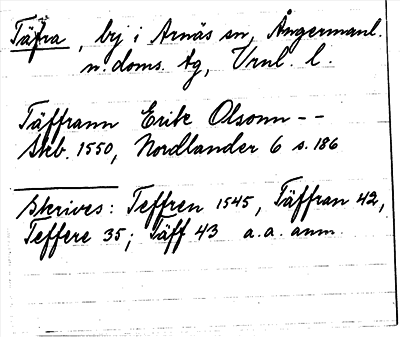 Täfra, by i Arnäs sn, Ångermanl.
n. doms. tg, Vrnl. l.
Täffrann Erik Olsonn --
Skb. 1550, Nordlander 6 s. 186
Skrives: Teffren 1545, Täffran 42,
Teffere 35; Täff 43 a.a. anm.